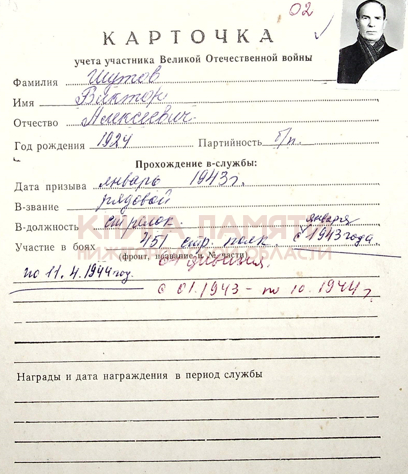 02
КАРТОЧКА
учета участника Великой Отечественной войны
Фамилия Шутов
Имя Виктор
Отчество Алексеевич.
Год рождения 1924 Партийность б/п.
Прохождение в-службы:
Дата призыва январь 1943 г.
В-звание рядовой
В-должность стрелок.
КНИГА ПАМЯТИ
января
Участие в боях 451 стр. полк. с 1943 года
(фронт, название и № части)
НИЖЕГОРОДСКОЙ ОБЛАСТИ
дивизия.
по 11.4.1944 год.
с 01.1943 - по 10.1944 г.
Награды и дата награждения в период службы